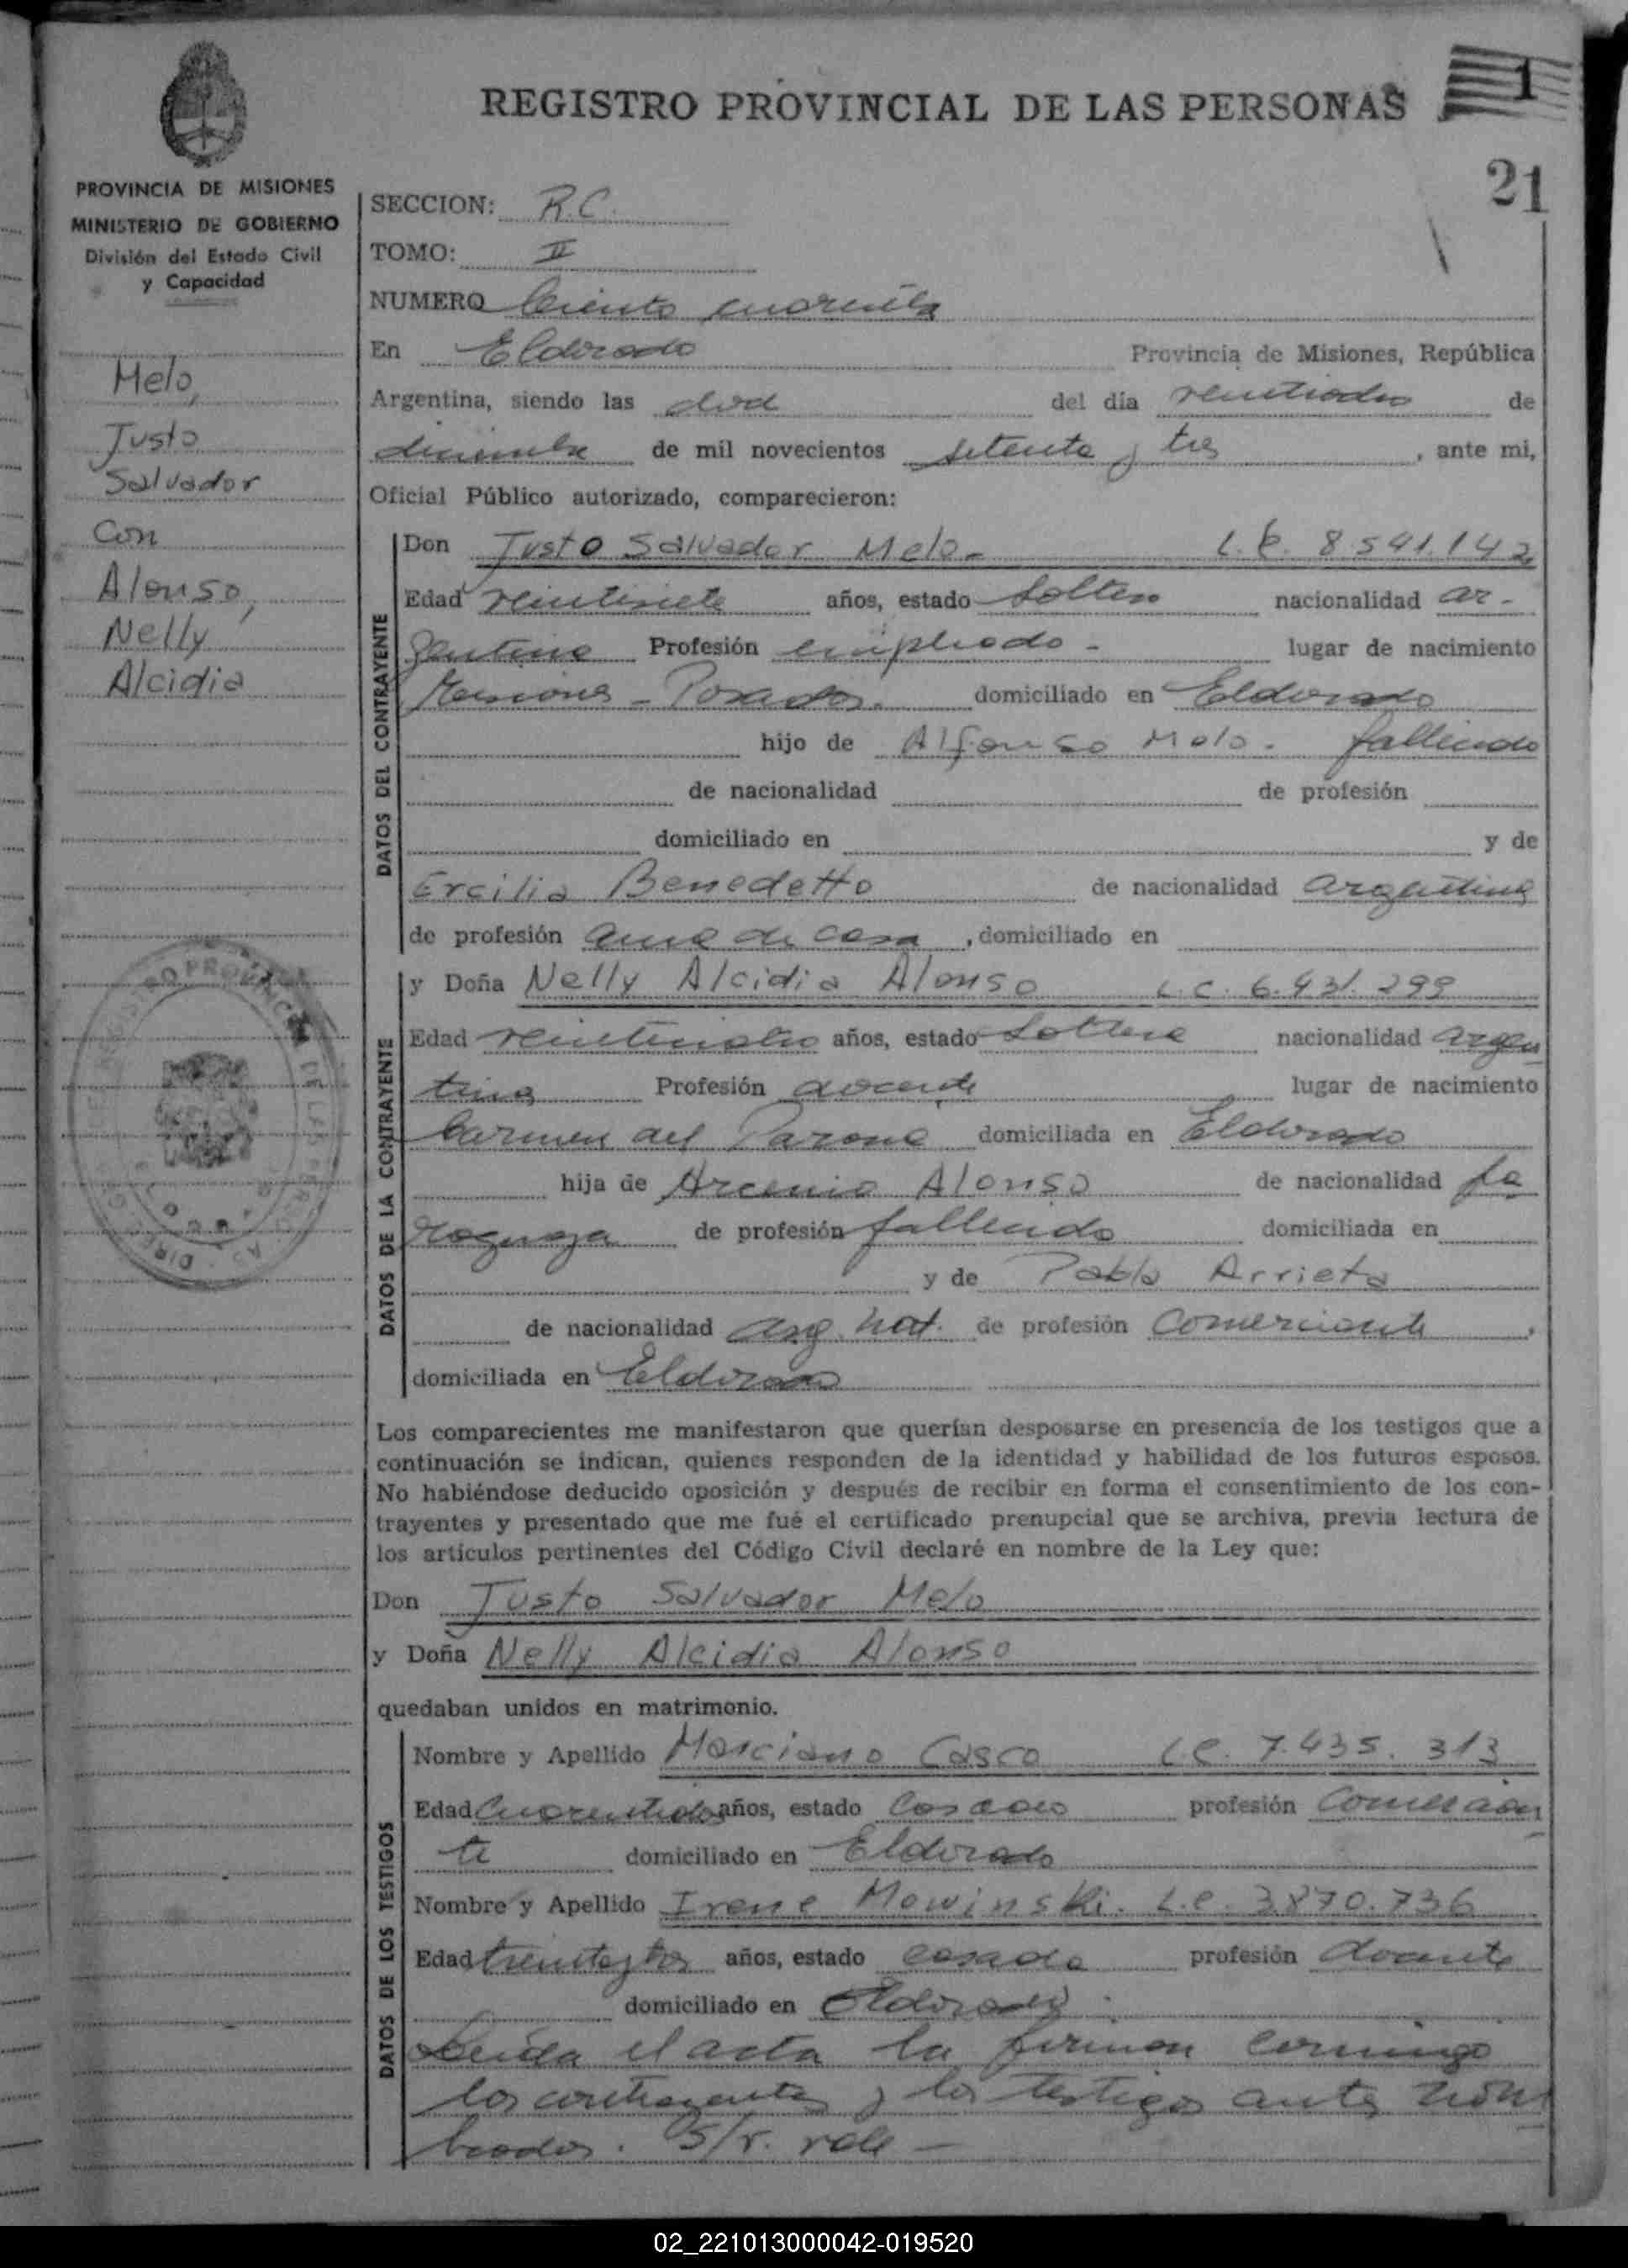 REGISTRO PROVINCIAL DE LAS PERSONAS
1
21
PROVINCIA DE MISIONES
MINISTERIO DE GOBIERNO
División del Estado Civil
y Capacidad
Melo,
Justo
Salvador
Con
Alonso,
Nelly
Alcidia
SECCION: R.C.
TOMO: II
NUMERO Ciento cuarenta
En Eldorado Provincia de Misiones, República
Argentina, siendo las doce del día veintiodos de
diciembre de mil novecientos setenta y tres, ante mi,
Oficial Público autorizado, comparecieron:
DATOS DEL CONTRAYENTE
Don Justo Salvador Melo - L.E. 8.541.142
Edad veintisiete años, estado soltero nacionalidad ar-
gentino Profesión empleado - lugar de nacimiento
Misiones - Posadas. domiciliado en Eldorado
hijo de Alfonso Melo. fallecido
de nacionalidad de profesión
domiciliado en y de
Ercilia Benedetto de nacionalidad argentina
de profesión ama de casa, domiciliado en
DATOS DE LA CONTRAYENTE
y Doña Nelly Alcidia Alonso L.C. 6.431.299
Edad años, estado soltera nacionalidad argen
tina Profesión docente lugar de nacimiento
Carmen del Parana domiciliada en Eldorado
hija de Arcenio Alonso de nacionalidad pa
raguaya de profesión fallecido domiciliada en
y de Pabla Arrieta
de nacionalidad arg. nat. de profesión Comerciante,
domiciliada en Eldorado
Los comparecientes me manifestaron que querían desposarse en presencia de los testigos que a
continuación se indican, quienes responden de la identidad y habilidad de los futuros esposos.
No habiéndose deducido oposición y después de recibir en forma el consentimiento de los con-
trayentes y presentado que me fué el certificado prenupcial que se archiva, previa lectura de
los artículos pertinentes del Código Civil declaré en nombre de la Ley que:
Don Justo Salvador Melo
y Doña Nelly Alcidia Alonso
quedaban unidos en matrimonio.
DATOS DE LOS TESTIGOS
Nombre y Apellido Marciano Casco L.E. 7.435.313
Edad años, estado Casado profesión Comercian
te domiciliado en Eldorado
Nombre y Apellido Irene Mowinski. L.C. 3.870.736
Edad años, estado casada profesión docente
domiciliado en Eldorado.
Leida el acta la firman conmigo
los contrayentes y los testigos antes nom
brados. S/r. vale -
02_221013000042-019520